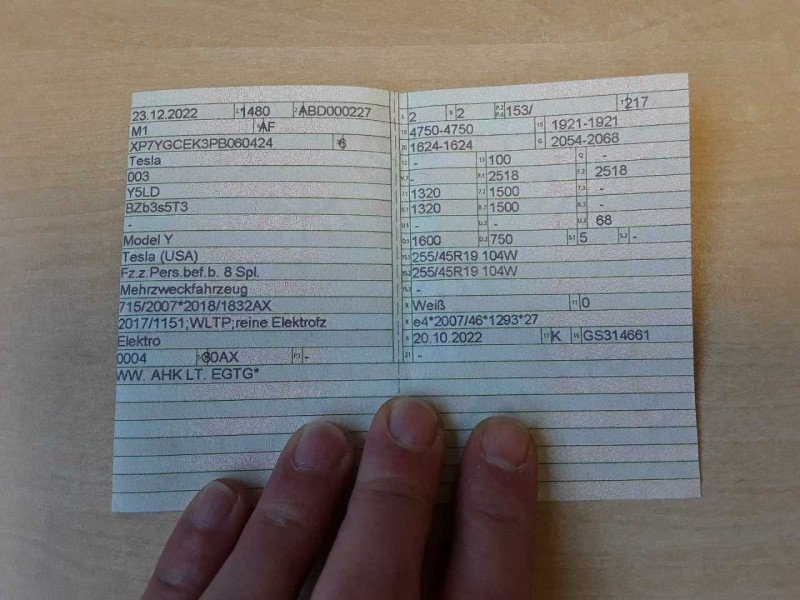 23.12.2022 1480 ABD000227
M1 AF
XP7YGCEK3PB060424 6
Tesla
003
Y5LD
BZb3s5T3
-
Model Y
Tesla (USA)
Fz.z.Pers.bef.b. 8 Spl.
Mehrzweckfahrzeug
715/2007*2018/1832AX
2017/1151;WLTP;reine Elektrofz
Elektro
0004 30AX P.3 -
WW. AHK LT. EGTG*
2 9 2 P.2 P.4 153/ 217
18 4750-4750 19 1921-1921
20 1624-1624 G 2054-2068
12 - 13 100 Q -
V.7 - F.1 2518 F.2 2518
7.1 1320 7.2 1500 7.3 -
8.1 1320 8.2 1500 8.3 -
U.1 - U.2 - U.3 68
O.1 1600 O.2 750 S.1 5 S.2 -
15.1 255/45R19 104W
15.2 255/45R19 104W
15.3 -
R Weiß 11 0
K e4*2007/46*1293*27
6 20.10.2022 17 K 16 GS314661
21 -